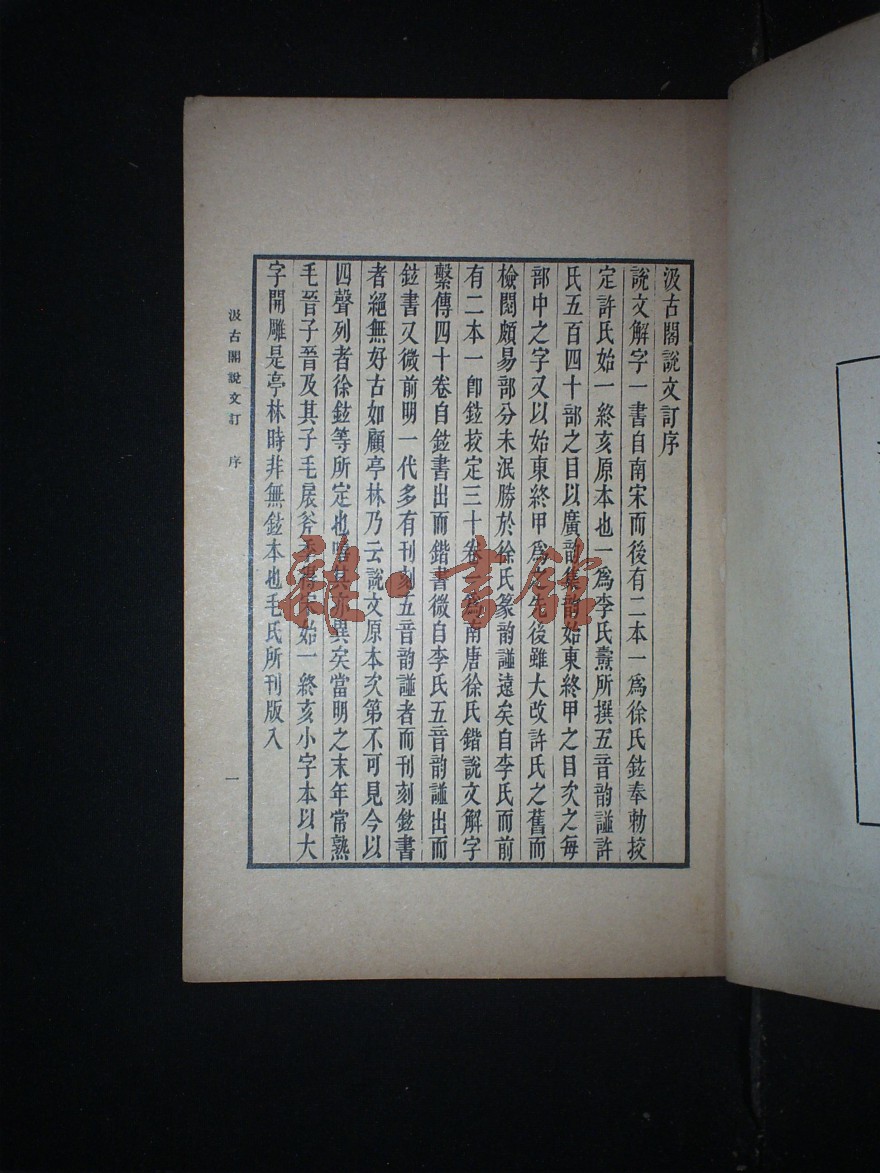 汲古閣說文訂序
說文解字一書自南宋而後有二本一爲徐氏鉉奉勅挍
定許氏始一終亥原本也一爲李氏燾所撰五音韵譜許
氏五百四十部之目以廣韵集韵始東終甲之目次之每
部中之字又以始東終甲爲之先後雖大改許氏之舊而
檢閱頗易部分未泯勝於徐氏篆韵譜遠矣自李氏而前
有二本一卽鉉挍定三十卷一爲南唐徐氏鍇說文解字
繫傳四十卷自鉉書出而鍇書微自李氏五音韵譜出而
鉉書又微前明一代多有刊刻五音韵譜者而刊刻鉉書
者絕無好古如顧亭林乃云說文原本次第不可見今以
四聲列者徐鉉等所定也嘻其亦異矣當明之末年常熟
毛晉子晉及其子毛扆斧季得宋始一終亥小字本以大
字開雕是亭林時非無鉉本也毛氏所刊版入
汲古閣說文訂 序 一
雜·書館